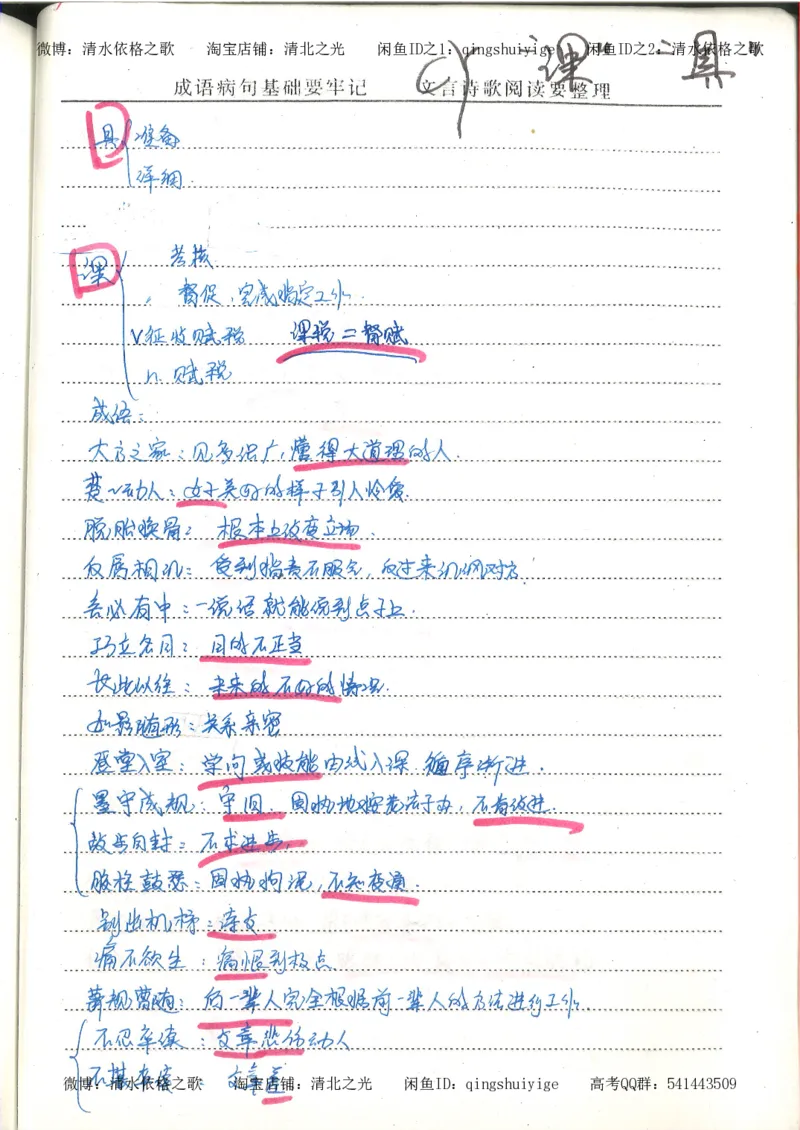 微博：清水依格之歌 淘宝店铺：清北之光 闲鱼ID之1：qingshuiyige 闲鱼ID之2：清水依格之歌
课 具
成语病句基础要牢记 文言诗歌阅读要整理
具 准备
详细
课 考核
督促，完成指定工作
V.征收赋税 课税=督赋
n.赋税
成语：
大方之家：见多识广，懂得大道理的人.
楚~动人：女子美好的样子引人怜爱
脱胎换骨：根本上改变立场.
反唇相讥：受到指责不服气，反过来讥讽对方.
言必有中：一说话就能说到点子上.
巧立名目：目的不正当
长此以往：未来的不好的情况.
如影随形：关系亲密
登堂入室：学问或技能由浅入深 循序渐进.
墨守成规：守旧. 因执地按老法子办，不肯改进.
故步自封：不求进步，
胶柱鼓瑟：固执拘泥，不知变通.
别出机杼：诗文
痛不欲生：痛恨到极点.
萧规曹随：后一辈人完全根据前一辈人的方法进行工作.
不忍卒读：文章悲伤动人
文章差
微博：清水依格之歌 淘宝店铺：清北之光 闲鱼ID：qingshuiyige 高考QQ群：541443509